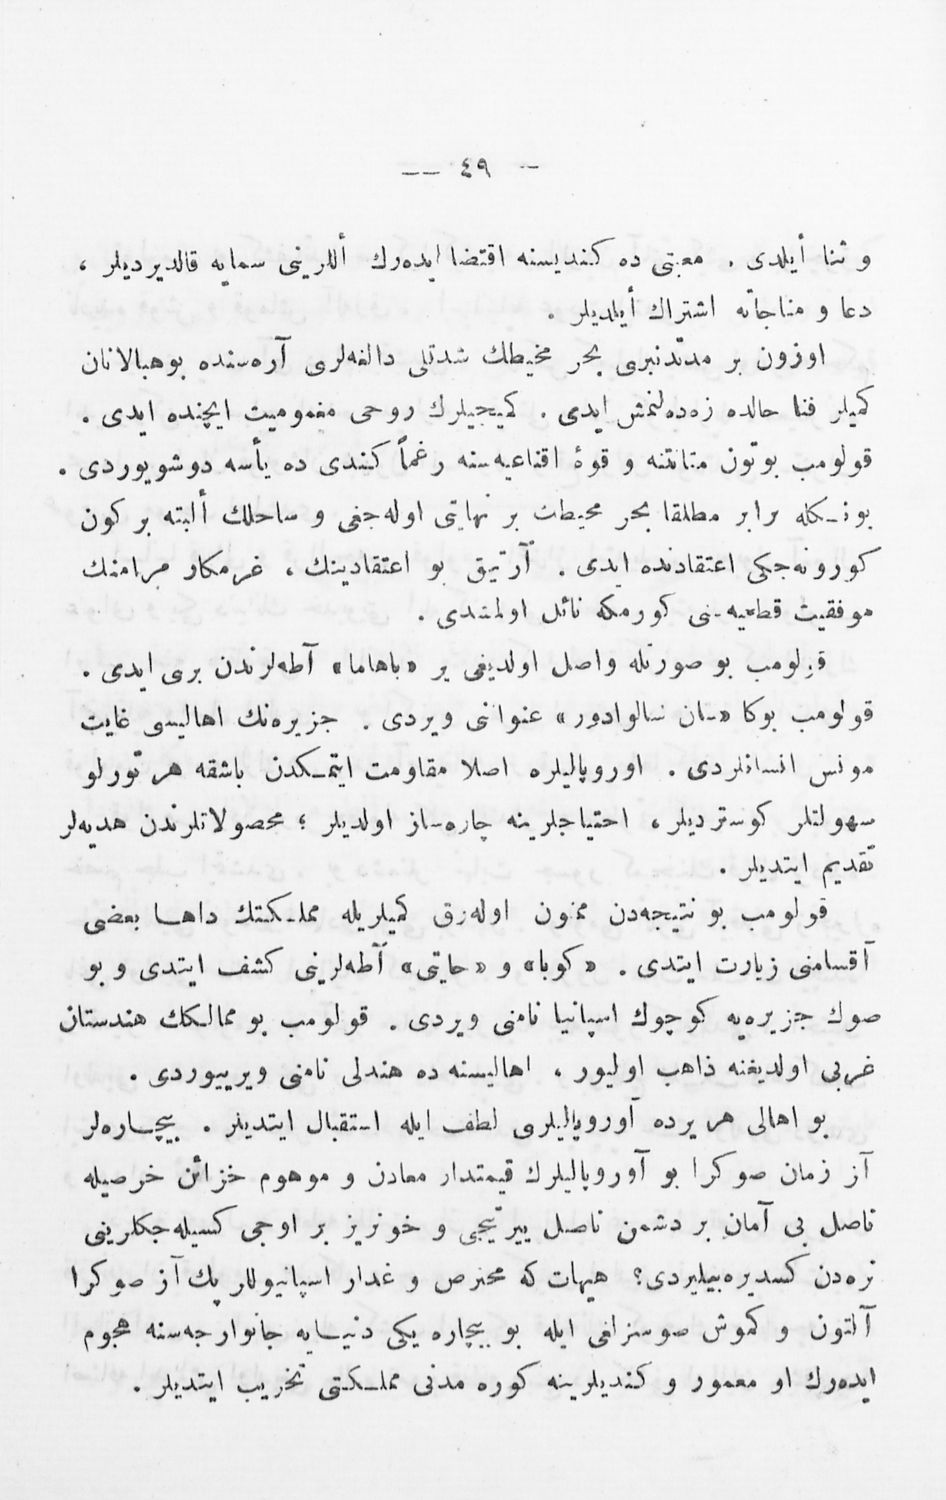 — ٤٩ —
و ثنا أیلدی . معیتی ده كندیسنه اقتضا ایده‌رك أللرینی سمایه قالدیردیلر ،
دعا و مناجاته اشتراك أیلدیلر .
اوزون بر مدتدنبری بحر محیطك شدتلی دالغه‌لری آره‌سنده بوهبالانان
كمیلر فنا حالده زه‌ده‌لنمش ایدی . كمیجیلرك روحی مغمومیت ایچنده ایدی .
قولومب بوتون متانتنه و قوهٔ اقناعیه‌سنه رغماً كندی ده یأسه دوشویوردی .
بونكله برابر مطلقا بحر محیطك بر نهایتی اوله‌جغی و ساحلك ألبته بر كون
كورونه‌جكی اعتقادنده ایدی . آرتیق بو اعتقادینك ، غرمكار مرامنك
موفقیت قطعیه‌سنی كورمكه نائل اولمتدی .
قولومب بو صورتله واصل اولدیغی یر «باهاما» آطه‌لرندن بری ایدی .
قولومب بوكا «سان سالوادور» عنواننی ویردی . جزیره‌نك اهالیسی غایت
مونس انسانلردی . اوروپالیلره اصلا مقاومت ایتمكدن باشقه هر تورلو
سهولتلر كوستردیلر ، احتیاجلرینه چاره‌ساز اولدیلر ؛ محصولاتلرندن هدیه‌لر
تقدیم ایتدیلر .
قولومب بو نتیجه‌دن ممنون اوله‌رق كمیلریله مملكتك داها بعضی
آقسامنی زیارت ایتدی . «كوبا» و «حایتی» آطه‌لرینی كشف ایتدی و بو
صوك جزیره‌یه كوچوك اسپانیا نامنی ویردی . قولومب بو ممالكك هندستان
غربی اولدیغنه ذاهب اولیور ، اهالیسنه ده هندلی نامنی ویرییوردی .
بو اهالی هر یرده آوروپالیلری لطف ایله استقبال ایتدیلر . بیچاره‌لر
آز زمان صوكرا بو آوروپالیلرك قیمتدار معادن و موهوم خزائن خرصیله
ناصل بی آمان بر دشمن ناصل ییرتیجی و خونریز بر اوجی كسیله‌جكلرینی
نره‌دن كسدیره‌بیلیردی؟ هیهات كه محترص و غدار اسپانیوللر پك آز صوكرا
آلتون و كموش صوسزلغی ایله بو بیچاره یكی دنیایه جانوارجه‌سنه هجوم
ایده‌رك او معمور و كندیلرینه كوره مدنی مملكتی تخریب ایتدیلر .